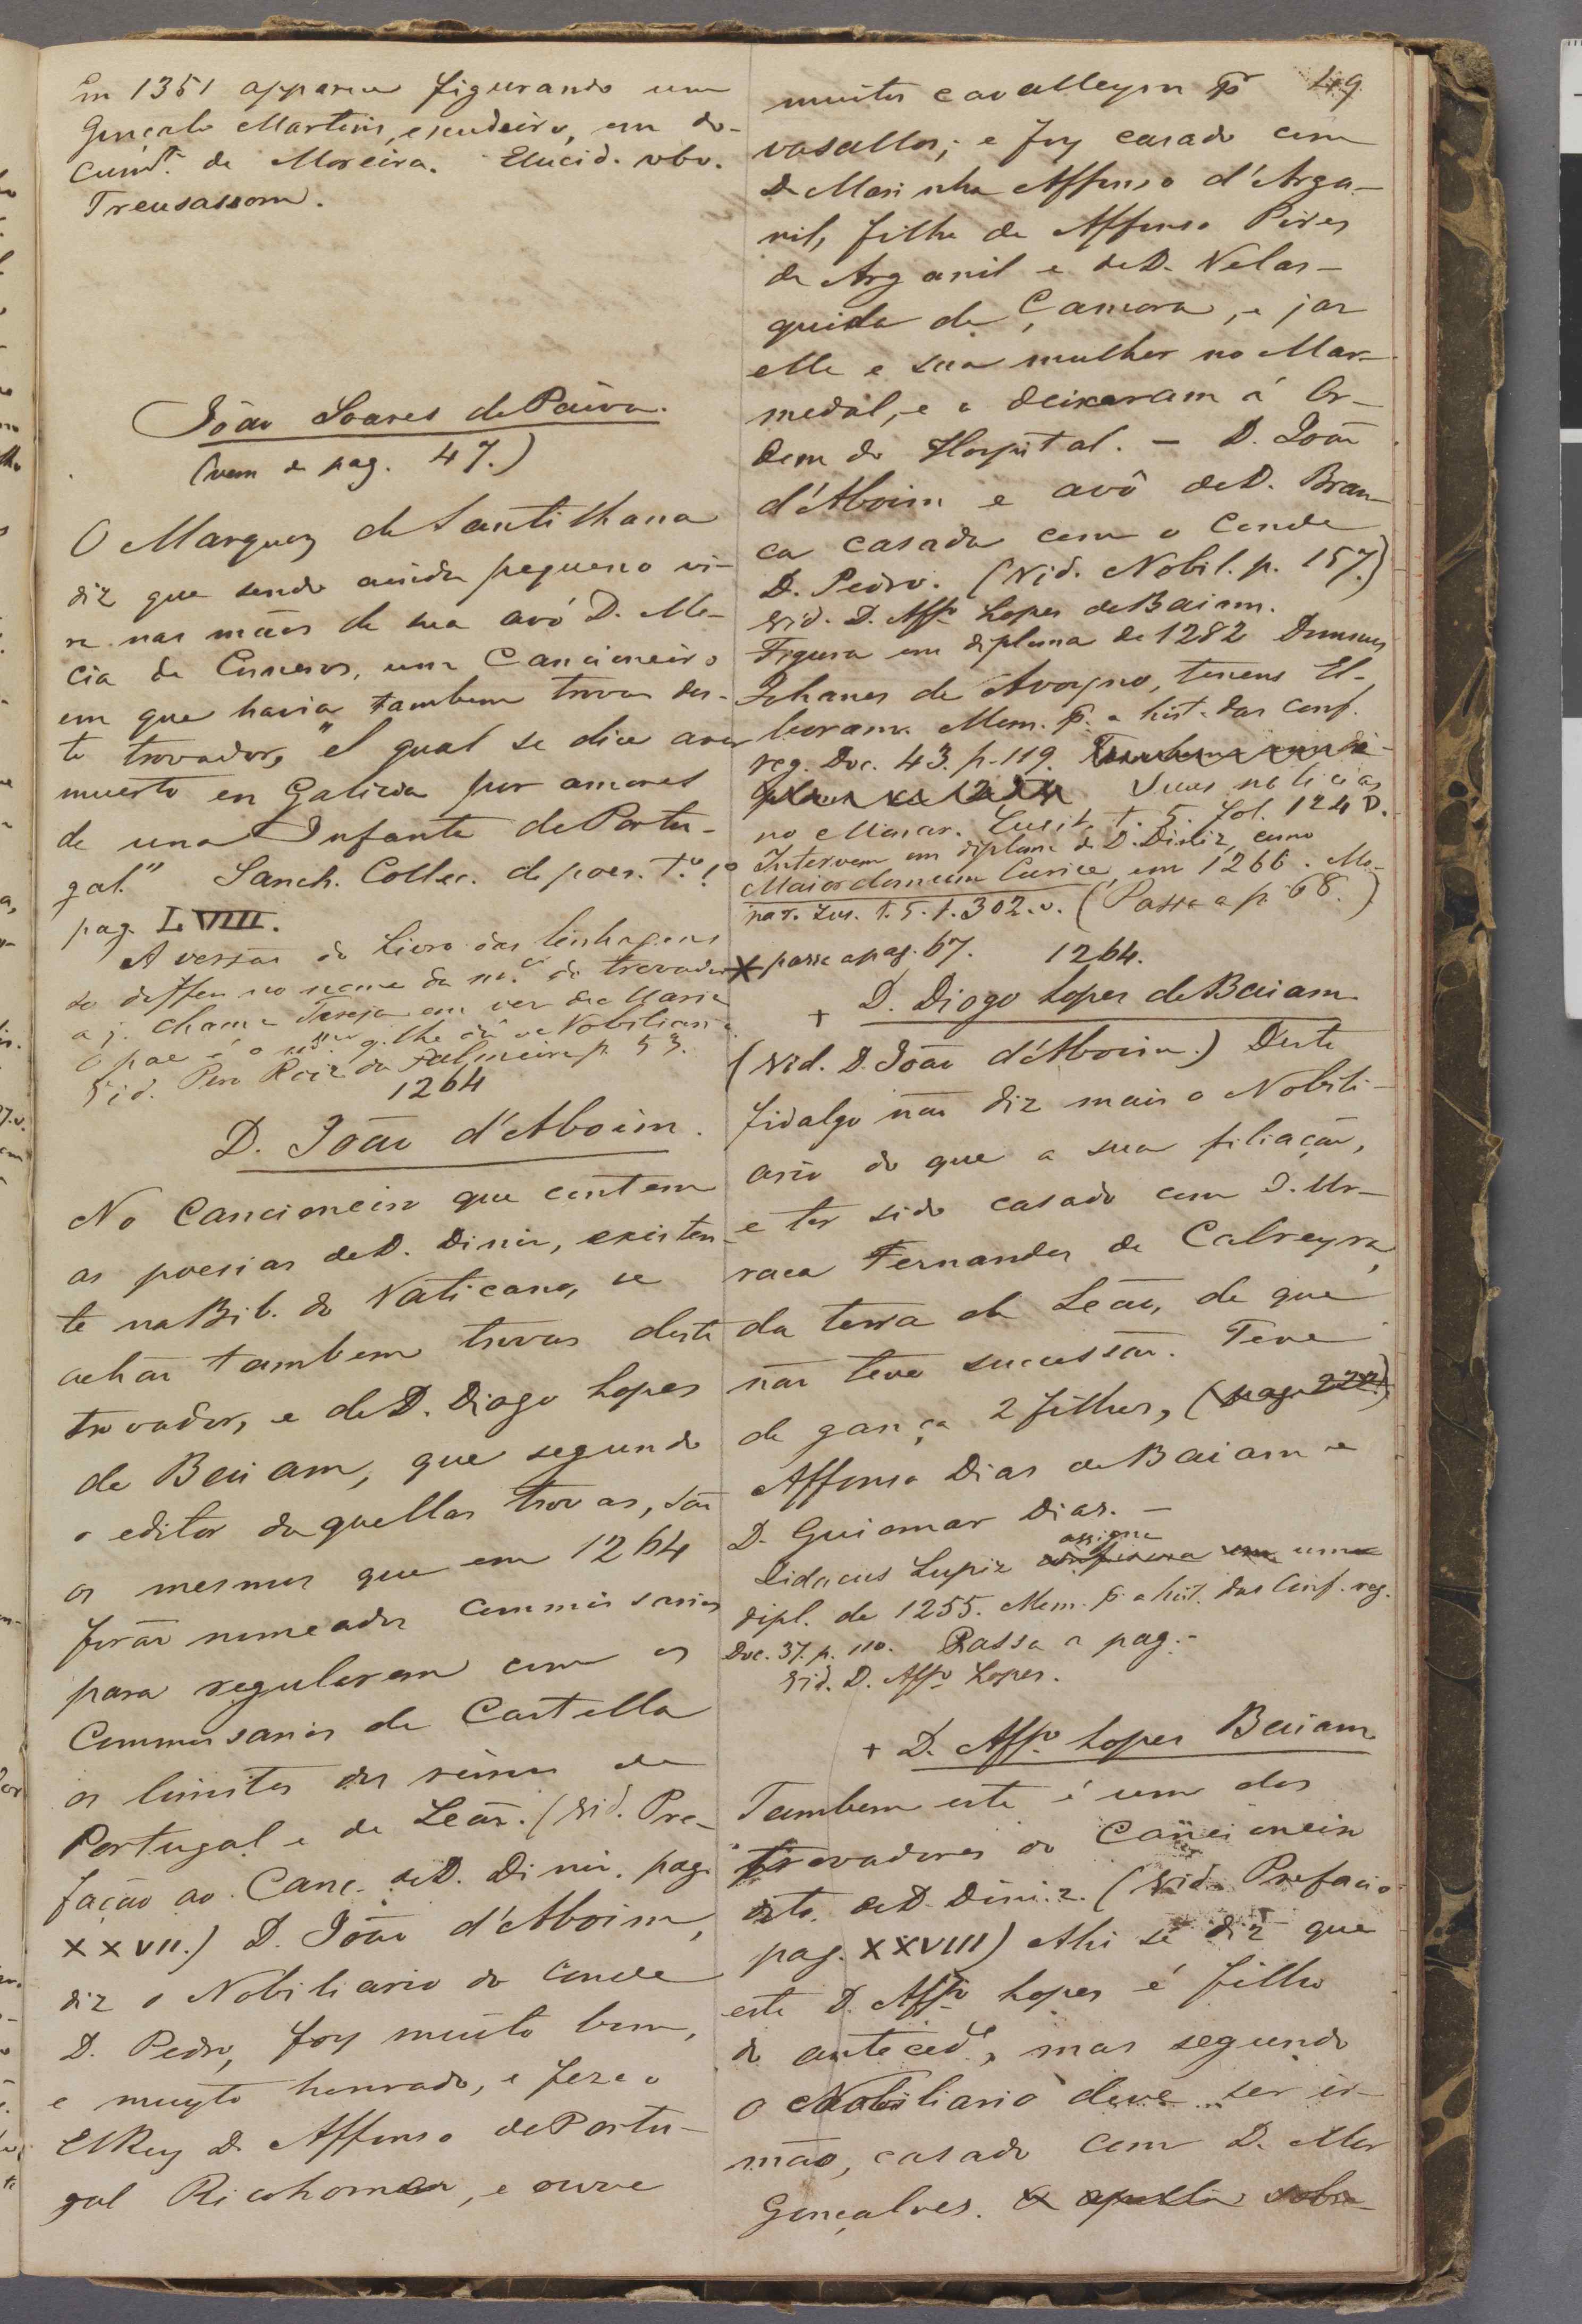 Em 1351 apparece figurando um
Gonçalo Martins, escudeiro, em do-
cumt.º de Moreira. Elucid. vbo.
Treusassom.
João Soares de Paiva.
(vem de pag. 47.)
O Marquez de Santilhana
diz que sendo ainda pequeno vi-
ra nas mãos de sua avó D. Me-
cia de Cisneros, um Cancioneiro
em que havia tambem trovas des-
te trovador, "el qual se dice aver
muerto en Galicia por amores
de una Infante de Portu-
gal." Sanch. Collec. de poes. T.º 1º
pag. LVIII.
A versão do Livro das linhagens
so differe no nome da m.er do trovador
a q. chama Tereja em vez de Maria
O pae é o m.mo q. lhe dá o Nobiliario.
Vid. Pero Roiz da Palmeira p. 53.
1264
D. João d'Aboim.
No Cancioneiro que contem
as poesias de D. Diniz, existen-
te na Bib. do Vaticano, se
achão tambem trovas deste
trovador, e de D. Diogo Lopes
de Baiam, que segundo
o editor daquellas trovas, são
os mesmos que em 1264
forão nomeados Commissarios
para regularem com os
Commissarios de Castella
os limites dos reinos de
Portugal e de Leão. (Vid. Pre-
fação ao Canc. de D. Diniz. pag.
XXVII.) D. João d'Aboim,
diz o Nobiliario do Conde
D. Pedro, foy muito bom,
e muyto honrado, e feze o
ElRey D. Affonso de Portu-
gal Ricohomem, e ouve
49
muitos cavalleyros p.r
vasallos; e foy casado com
D. Marinha Affonso d'Arga-
nil, filha de Affonso Pires
de Arganil e de D. Velas-
quida de Çamora, e jaz
elle e sua mulher no Mar-
medal, e o deixaram á Or-
dem do Hospital. - D. João
d'Aboim e avô de D. Bran-
ca casada com o Conde
D. Pedro. (Vid. Nobil. p. 157.)
Vid. D. Affº Lopes de Baiam.
Figura em diploma de 1282 Domnus
Johanes de Avoyno, tenens El-
boram. Mem. p. a hist. das conf.
reg. Doc. 43. p. 119.
Suas noticias
no Monar. Lusit. t. 5. fol. 124 v.
Intervem em diploma de D. Diniz, como
Maiordomum Curice, em 1266. Mo-
nar. Lus. t. 5. f. 302. v. (Passa a p. 68.)
* passa a pag. 67. 1264.
+ D. Diogo Lopes de Baiam
(Vid. D. João d'Aboim.) Deste
fidalgo não diz mais o Nobili-
ario do que a sua filiação,
e ter sido casado com D. Ur-
raca Fernandes de Cabreyra,
da terra de Leão, de que
não teve successão. Teve
de gança 2 filhos, (pag. 222)
Affonso Dias de Baiam e
D. Guiomar Dias. -
assigna
Didacus Lupiz um
dipl. de 1255. Mem. p. a hist. das Conf. reg.
Doc. 37. p. 110. Passa a pag. -
Vid. D. Affº Lopes.
+ D. Affº Lopes Baiam
Tambem este é um dos
trovadores do Cancioneiro
dito de D. Diniz. (Vid. Prefacio
pag. XXVIII) Ahi se diz que
este D. Affº Lopes é filho
do anteced.e, mas segundo
o Nobiliario deve ser ir-
mão, casado com D. Mor
Gonçalves.